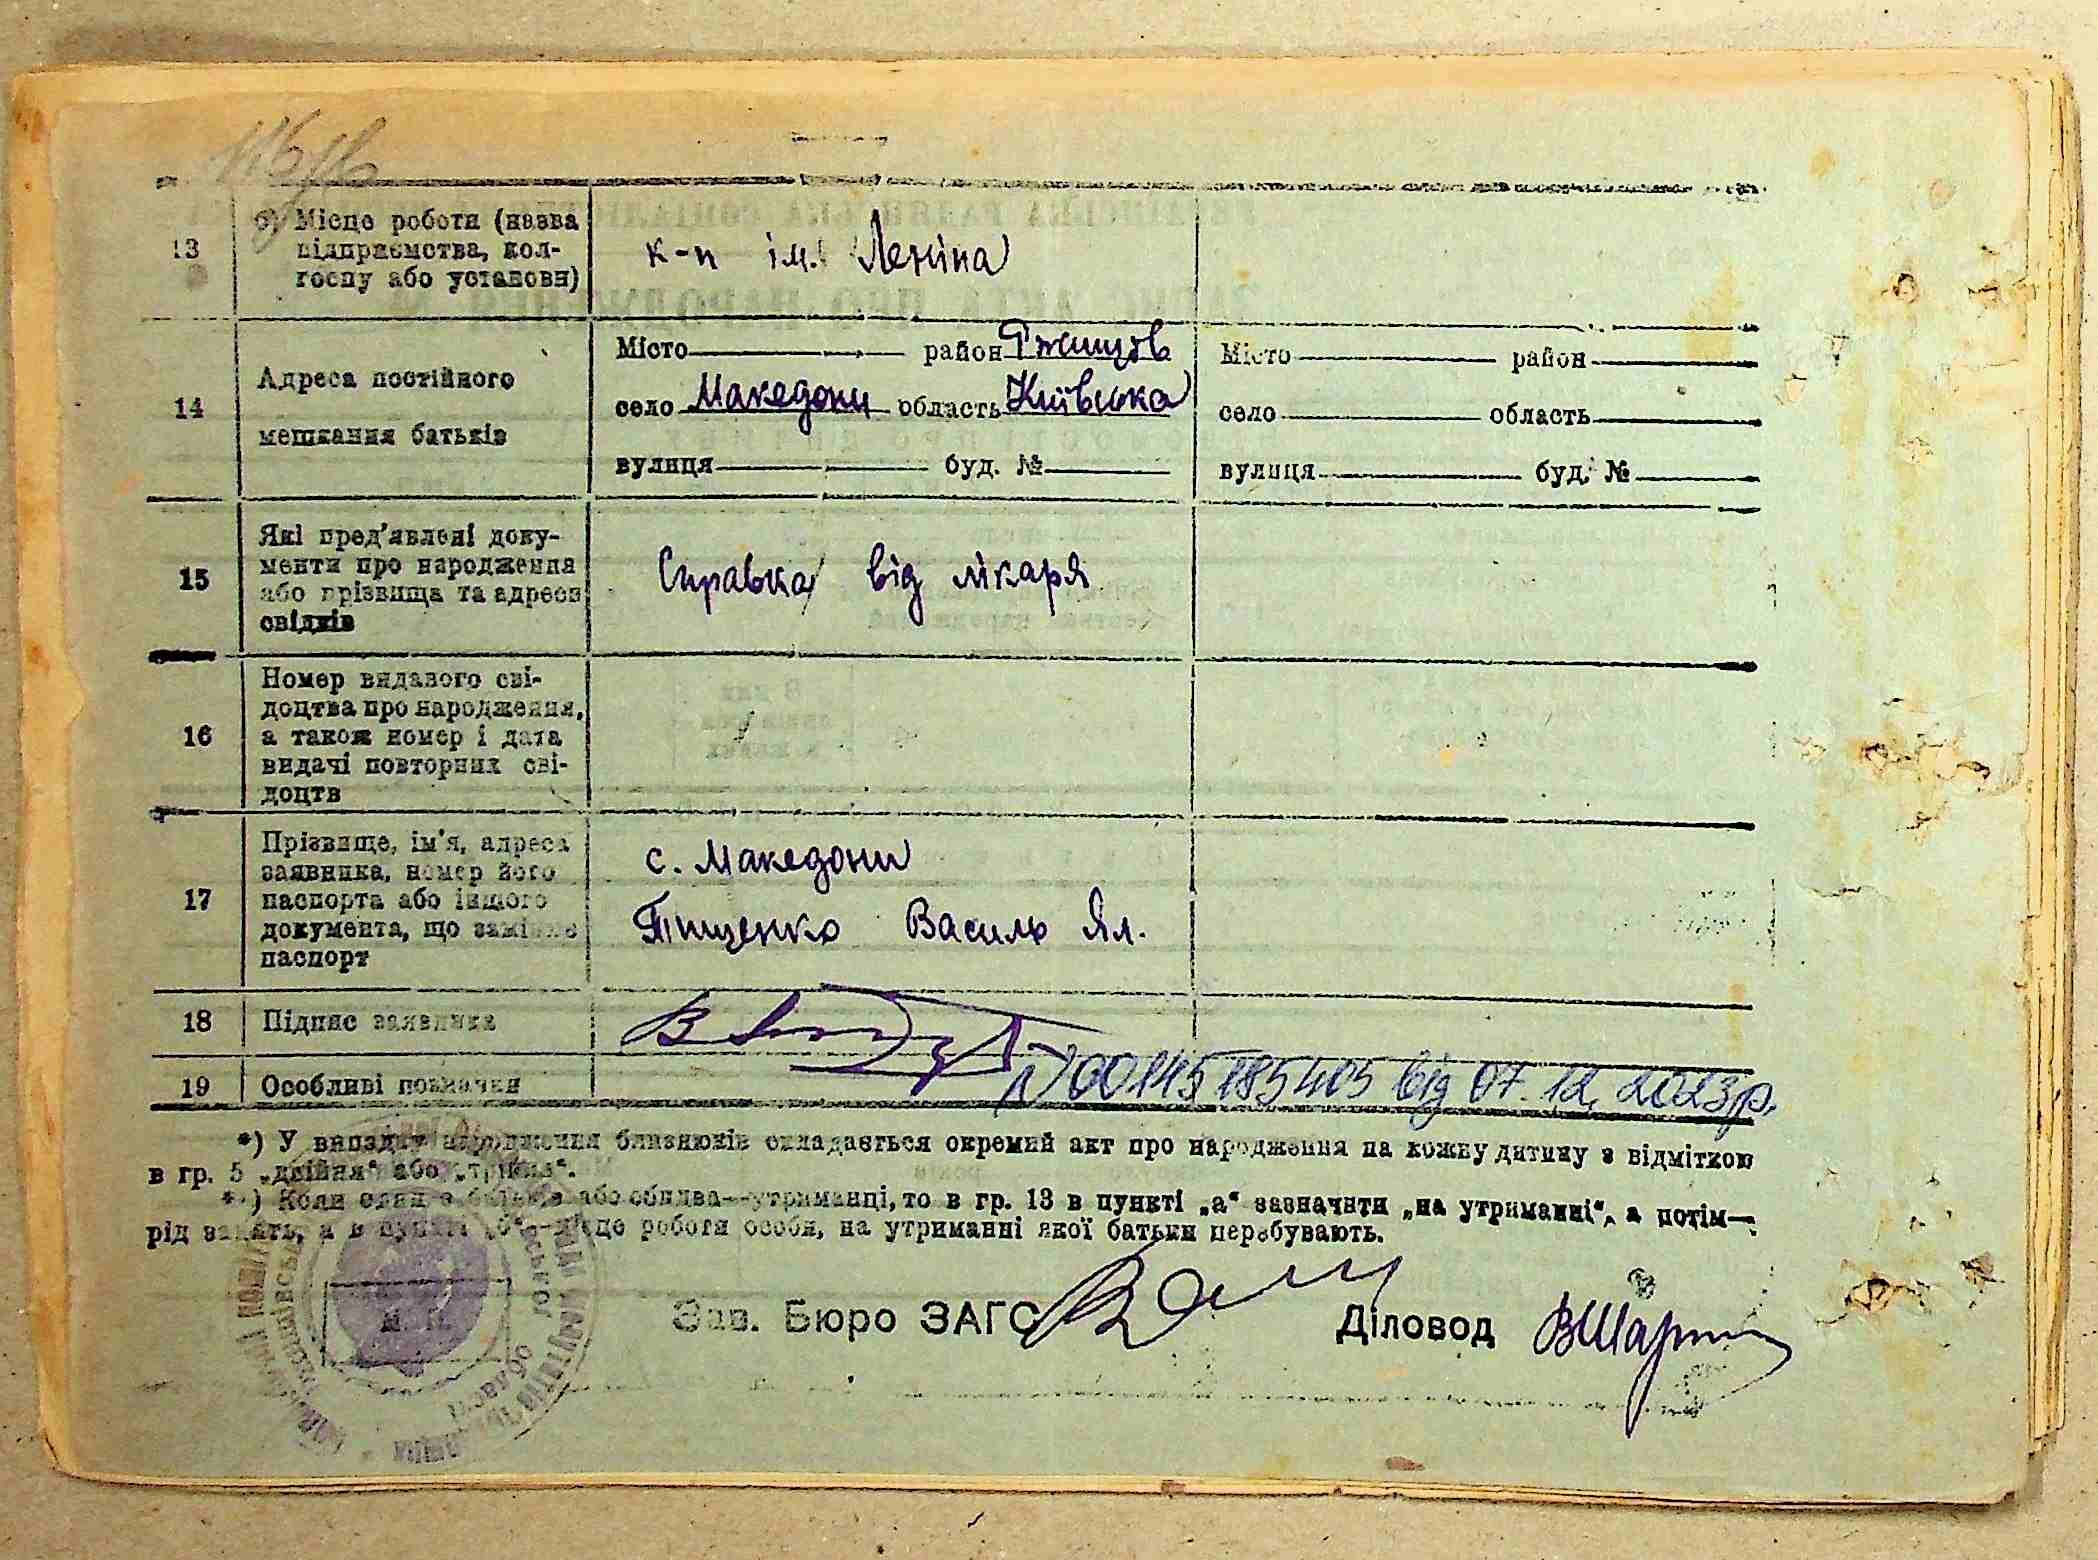 13
б) Місце роботи (назва
підприємства, кол-
госпу або установи)
к-п ім. Леніна
14
Адреса постійного
мешкання батьків
Місто район Ржищів
село Македони область Київська
вулиця буд. №
Місто район
село область
вулиця буд. №
15
Які пред'явлені доку-
менти про народження
або прізвища та адреси
свідків
Справка від лікаря
16
Номер виданого сві-
доцтва про народження,
а також номер і дата
видачі повторних сві-
доцтв
17
Прізвище, ім'я, адреса
заявника, номер його
паспорта або іншого
документа, що заміняє
паспорт
с. Македони
Тищенко Василь Ял.
18
Підпис заявника
19
Особливі позначки
N 00145185405 від 07.12.2023р.
*) У випадку народження близнюків складається окремий акт про народження на кожну дитину з відміткою
в гр. 5 „двійня“ або „трійня“.
**) Коли один з батьків або обидва—утриманці, то в гр. 13 в пункті „а“ зазначити „на утриманні“, а потім—
рід занять, а в пункті „б“—місце роботи особи, на утриманні якої батьки перебувають.
М. П.
Зав. Бюро ЗАГС
Діловод